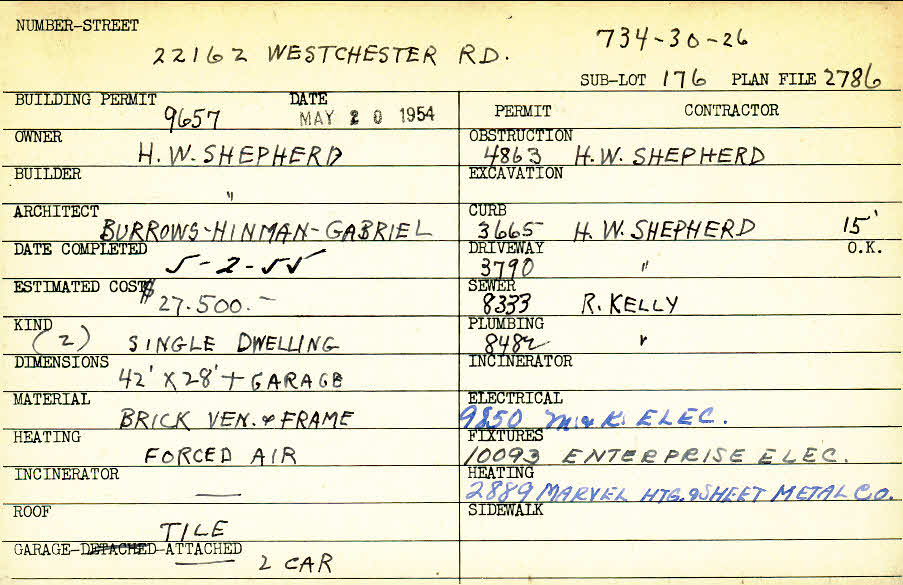 NUMBER-STREET
22162 WESTCHESTER RD.
734-30-26
SUB-LOT 176 PLAN FILE 2786
BUILDING PERMIT 9657 DATE MAY 20 1954
OWNER
H.W. SHEPHERD
BUILDER
"
ARCHITECT
BURROWS-HINMAN-GABRIEL
DATE COMPLETED
5-2-55
ESTIMATED COST
$27.500.-
KIND
(2) SINGLE DWELLING
DIMENSIONS
42' X 28' + GARAGE
MATERIAL
BRICK VEN. & FRAME
HEATING
FORCED AIR
INCINERATOR
—
ROOF
TILE
GARAGE-DETACHED-ATTACHED
2 CAR
PERMIT CONTRACTOR
OBSTRUCTION
4863 H.W. SHEPHERD
EXCAVATION
CURB
3665 H.W. SHEPHERD 15'
DRIVEWAY O.K.
3790 "
SEWER
8333 R. KELLY
PLUMBING
8482 "
INCINERATOR
ELECTRICAL
9850 M. & K. ELEC.
FIXTURES
10093 ENTERPRISE ELEC.
HEATING
2889 MARVEL HTG. & SHEET METAL CO.
SIDEWALK